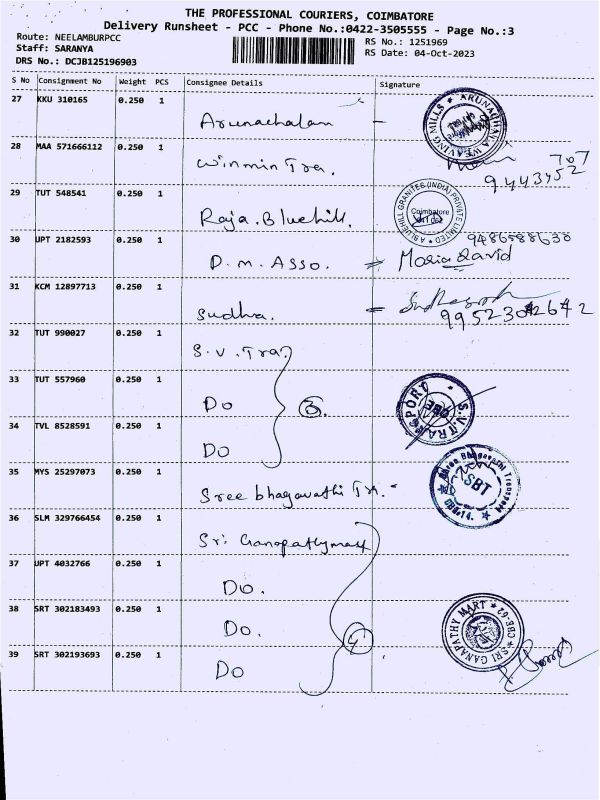 THE PROFESSIONAL COURIERS, COIMBATORE
Delivery Runsheet - PCC - Phone No.:0422-3505555 - Page No.:3
Route: NEELAMBURPCC
RS No.: 1251969
Staff: SARANYA
RS Date: 04-Oct-2023
DRS No.: DCJB125196903
S No Consignment No Weight PCS Consignee Details Signature
27 KKU 310165 0.250 1 Arunachalam
ARUNACHALA WEAVING MILLS
28 MAA 571666112 0.250 1 Winmin Tra.
707
9443452
29 TUT 548541 0.250 1 Raja. Bluehill.
A BLUEHILL GRANITES (INDIA) PRIVATE LIMITED
Coimbatore
30 UPT 2182593 0.250 1 D. M. Asso. = Maria David
9486588630
31 KCM 12897713 0.250 1 Sudha. =
32 TUT 990027 0.250 1 S. V. Tra.
33 TUT 557960 0.250 1 Do 3.
S.V. TRANSPORT
34 TVL 8528591 0.250 1 Do
35 MYS 25297073 0.250 1 Sree bhagavathi Tra. -
Shree Bhagavathi Transport
SBT
CBE-14.
36 SLM 329766454 0.250 1 Sri Ganapathymart
37 UPT 4032766 0.250 1 Do.
38 SRT 302183493 0.250 1 Do. 4
SRI GANAPATHY MART
CBE-62
39 SRT 302193693 0.250 1 Do